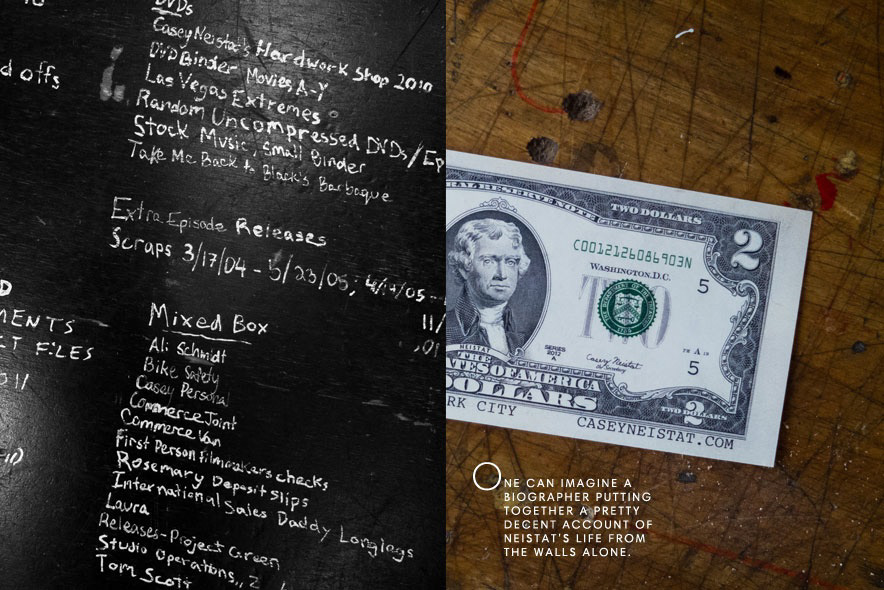 d offs
MENTS
CT FILES
DVDs
Casey Neistat's Hardwork Shop 2010
DVD Binder Movies A-Y
Las Vegas Extremes
Random Uncompressed DVDs/Ep
Stock Music, Small Binder
Take Me Back to Black's Barbaque
Extra Episode Releases
Scraps 3/17/04 - 5/23/05;
11/
Mixed Box
Ali Schmidt
Bike Safety
Casey Personal
Commerce Joint
Commerce Van
First Person Filmmakers checks
Rosemary Deposit Slips
International Sales Daddy Longlegs
Laura
Releases-Project Green
Studio Operations,, 2
Tom Scott
RAL RESERVE NOTE
TWO DOLLARS
2
C0012126086903N
WASHINGTON, D.C.
5
SERIES
2012
A
Casey Neistat
5
NEISTAT
TATES OF AMERICA
DOLLARS
2
TWO DOLLARS
RK CITY
CASEYNEISTAT.COM
ONE CAN IMAGINE A
BIOGRAPHER PUTTING
TOGETHER A PRETTY
DECENT ACCOUNT OF
NEISTAT'S LIFE FROM
THE WALLS ALONE.